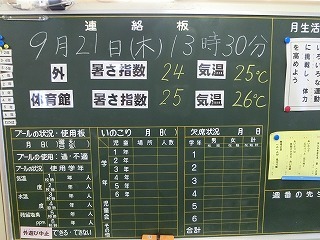 連絡板
9月21日(木)13時30分
外 暑さ指数 24 気温 25℃
体育館 暑さ指数 25 気温 26℃
プールの状況・使用板
月 日( )
プールの使用：適・不適
プールの状況 使用学年
気温
水温
残留塩素
ppm
外遊び中止 できる・できない
いのこり 月 日( )
児童 場所 人数
学年
1年
2年
3年
4年
5年
6年
児童会 その他
欠席状況 月 日
学年 男 女 計
1
2
3
4
5
6
合計
月生活
いろいろな運動
に挑戦し、体力
を高めよう
週番の先生